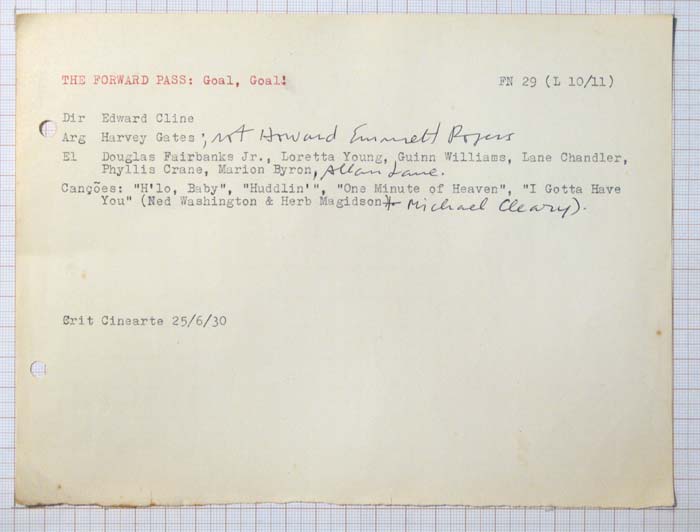 THE FORWARD PASS: Goal, Goal! FN 29 (L 10/11)
Dir Edward Cline
Arg Harvey Gates; Howard Emmett Rogers
El Douglas Fairbanks Jr., Loretta Young, Guinn Williams, Lane Chandler,
Phyllis Crane, Marion Byron, Allan Lane.
Canções: "H'lo, Baby", "Huddlin'", "One Minute of Heaven", "I Gotta Have
You" (Ned Washington & Herb Magidson & Michael Cleary).
Crit Cinearte 25/6/30